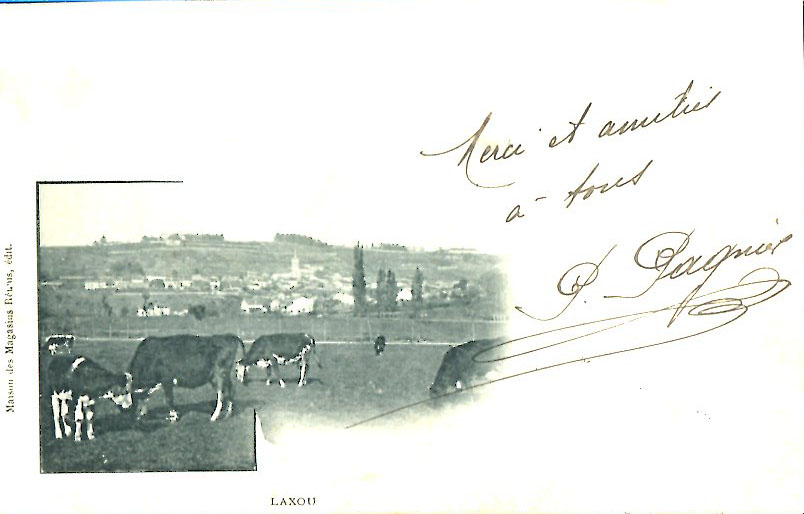 Merci et amitiés
à tous
P. Pagnier
Maison des Magasins Réunis, édit.
LAXOU